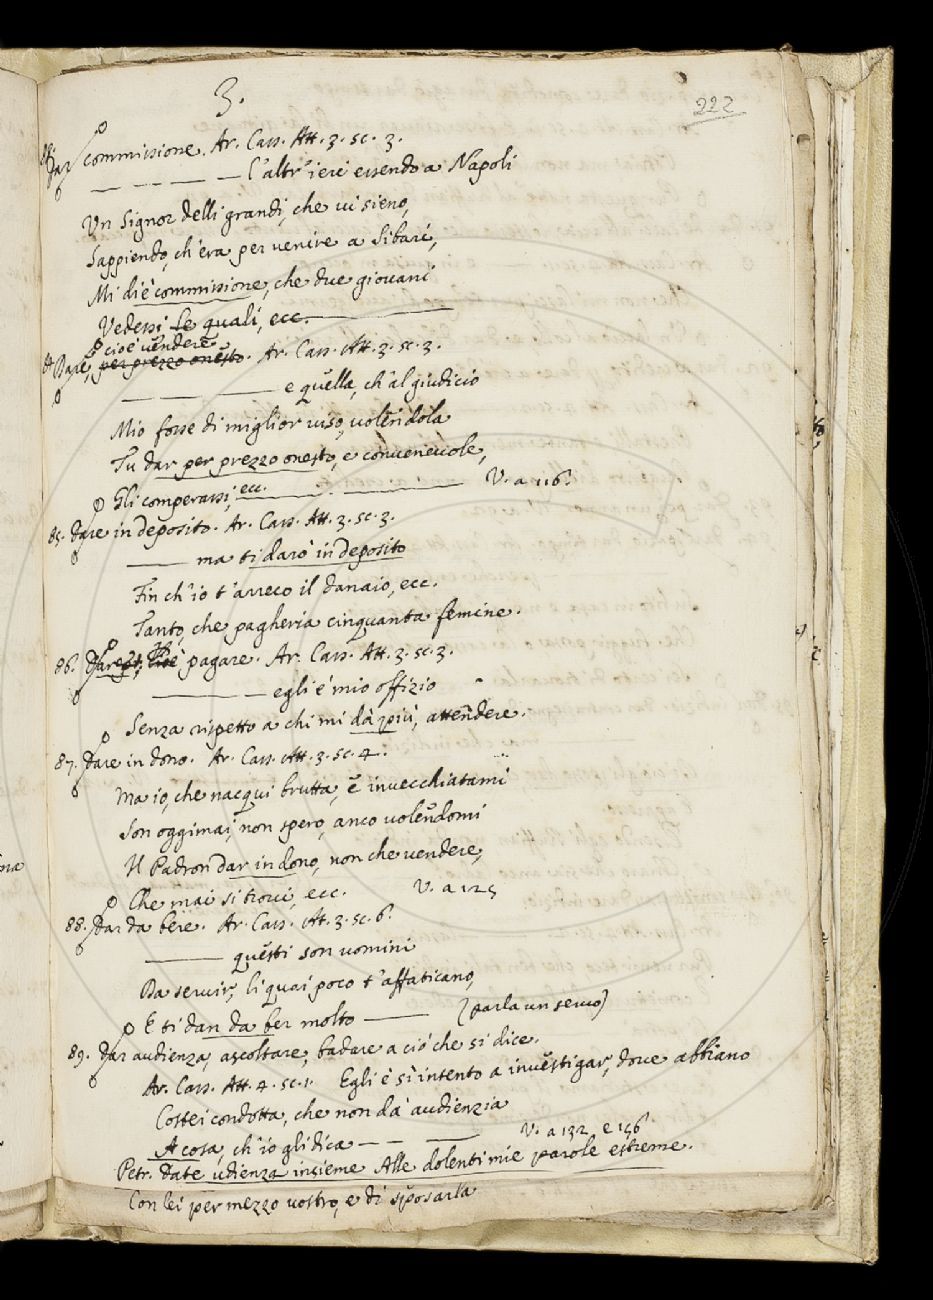 3.
222
Dar commissione. Ar. Cass. Att. 3. sc. 3.
L'altr'ieri essendo a Napoli
Un Signor delli grandi, che vi sieno,
Sappiendo, ch'era per venire a Sibari,
Mi diè commissione, che due giovani
Vedessi le quali, ecc.
cioè vendere
84 Dare, per prezzo onesto. Ar. Cass. Att. 3. sc. 3.
e quella, ch'al giudicio
Mio forse di miglior viso, volendola
Tu dar per prezzo onesto, e convenevole,
Gli comperassi, ecc. V. a 116.
85. Dare in deposito. Ar. Cass. Att. 3. sc. 3.
ma ti darò in deposito
Fin ch'io t'arreco il danaio, ecc.
Tanto, che pagheria cinquanta femine.
86. Dare pagare. Ar. Cass. Att. 3. sc. 3.
egli è mio offizio
Senza rispetto a chi mi dà più, attendere.
87. Dare in dono. Ar. Cass. Att. 3. sc. 4.
Ma io, che nacqui brutta, e invecchiatami
Son oggimai, non spero, anco volendomi
Il Padron dar in dono, non che vendere,
Che mai si trovi, ecc. V. a 125
88. Dar da bere. Ar. Cass. Att. 3. sc. 6.
questi son uomini
Da servir, li quai poco t'affaticano,
E ti dan da ber molto (parla un servo)
89. Dar audienza, ascoltare, badare a ciò che si dice.
Ar. Cass. Att. 4. sc. 1. Egli è sì intento a investigar, dove abbiano
Costei condotta, che non dà audienzia
A cosa, ch'io gli dica V. a 132 e 156
Petr. Date udienza insieme Alle dolenti mie parole estreme.
Con lei per mezzo vostro, e di sposarla